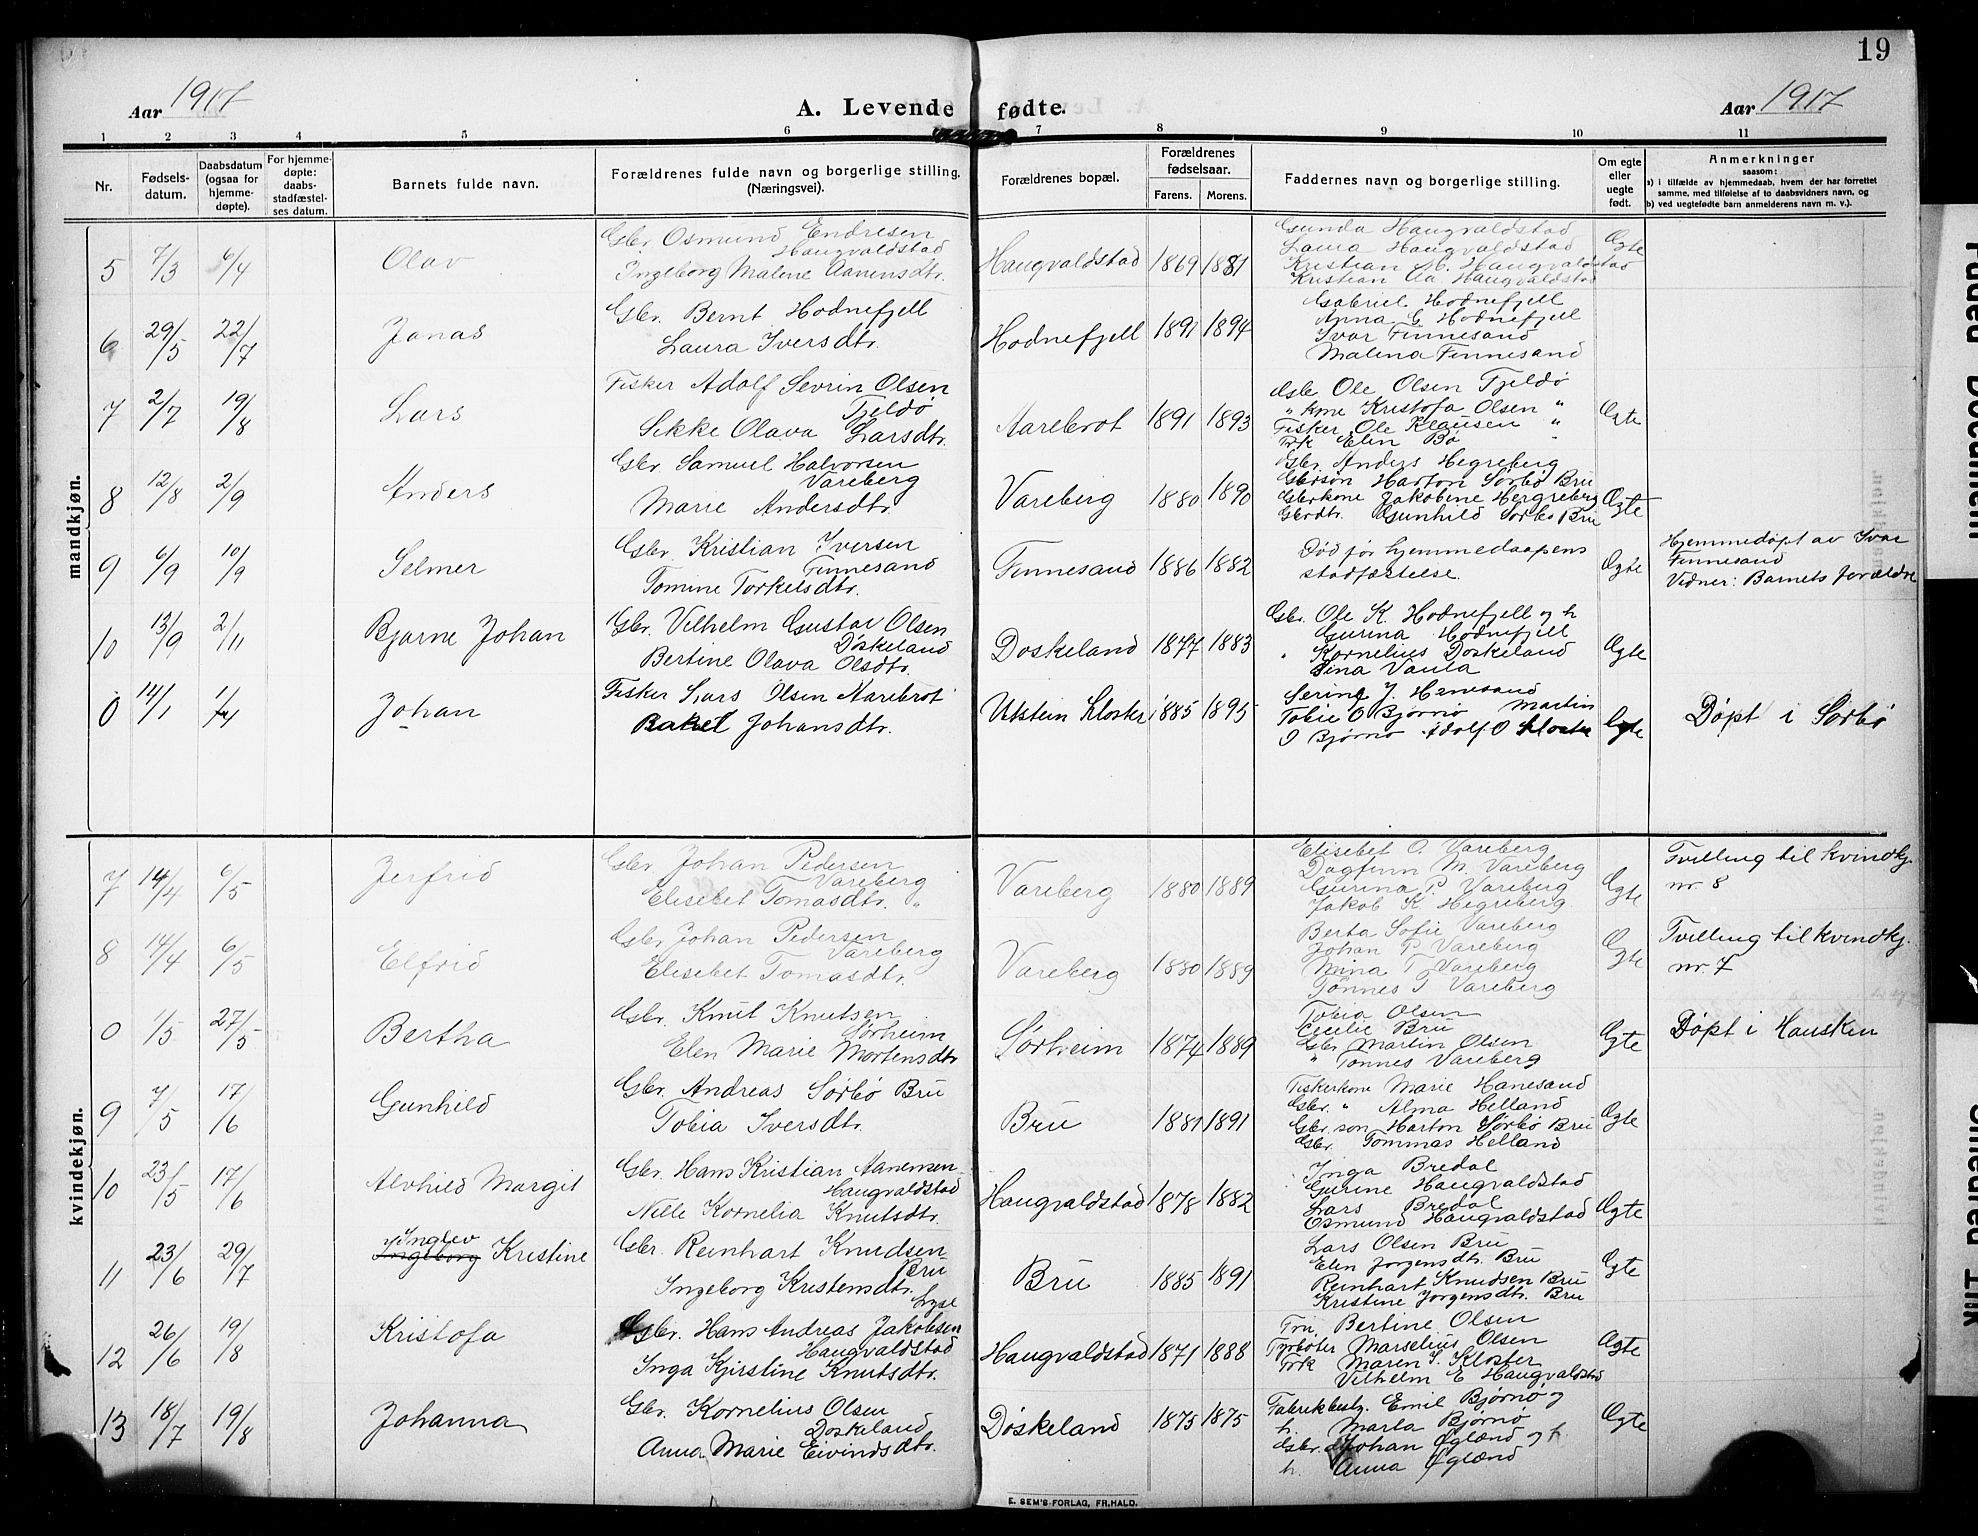 19
Aar 1917
A. Levende fødte.
Aar 1917
1 2 3 4 5 6 7 8 9 10 11
Nr.
Fødsels-
datum.
Daabsdatum
(ogsaa for
hjemme-
døpte).
For hjemme-
døpte:
daabs-
stadfæstel-
ses datum.
Barnets fulde navn.
Forældrenes fulde navn og borgerlige stilling.
(Næringsvei).
Forældrenes bopæl.
Forældrenes
fødselsaar.
Farens. Morens.
Faddernes navn og borgerlige stilling.
Om egte
eller
uegte
født.
Anmerkninger
saasom:
a) i tilfælde av hjemmedaab, hvem der har forrettet
samme, med tilføielse af to daabsvidners navn, og
b) ved uegtefødte barn anmelderens navn m. v.).
mandkjøn.
5 7/3 6/4 Olav
Gbr. Osmund Endresen
Haugvaldstad
Ingeborg Malene Aanensdtr.
Haugvaldstad 1869 1881
Gunda Haugvaldstad
Laura Haugvaldstad
Kristian M. Haugvaldstad
Kristian Aa. Haugvaldstad
Ægte
6 29/5 22/7 Jonas
Gbr. Bernt Hodnefjell
Laura Iversdtr.
Hodnefjell 1891 1894
Gabriel Hodnefjell
Anna G Hodnefjell
Ivar Finnesand
Malena Finnesand
7 2/7 19/8 Lars
Fisker Adolf Sevrin Olsen
Fjeldø
Sikke Olava Larsdtr.
Aarebrot 1891 1893
Gbr Ole Olsen Fjeldø
" kone Kristofa Olsen "
Fisker Ole Klausen "
Frk Elin Bø
Ægte
8 12/8 2/9 Anders
Gbr. Samuel Halvorsen
Vareberg
Marie Andersdtr.
Vareberg 1880 1890
Gbr. Anders Hegreberg
Gbrsøn Harton Sørbø Bru
Gbrkone Jakobine Hergreberg
Gbrdtr. Gunhild Sørbø Bru
Ægte
9 6/9 10/9 Selmer
Gbr. Kristian Iversen
Finnesand
Tomine Torkelsdtr.
Finnesand 1886 1882
Død før hjemmedaapens
stadfæstelse.
Ægte
Hjemmedøpt av Ivar
Finnesand
Vidner: Barnets forældre
10 13/9 2/11 Bjarne Johan
Gbr. Vilhelm Gustav Olsen
Døskeland
Bertine Olava Olsdtr.
Døskeland 1877 1883
Gbr. Ole K. Hodnefjell og h
Gurina Hodnefjell
" Kornelius Døskeland
Dina Vaula
Ægte
0 14/1 1/4 Johan
Fisker Lars Olsen Aarebrot
Rakel Johansdtr.
Utstein Kloster 1885 1895
Serine J. Hanesand
Tobie O Bjørnø Martin
O Bjørnø Adolf O Kloster
Egte
Døpt i Sørbø
kvindekjøn.
7 14/4 6/5 Jerfrid
Gbr. Johan Pedersen
Vareberg
Elisebet Tomasdtr. "
Vareberg 1880 1889
Elisebet O. Vareberg
Dagfinn M. Vareberg
Gurina P. Vareberg
Jakob K Hegreberg.
Ægte
Tvilling til kvindkj.
nr. 8
8 14/4 6/5 Elfrid
Gbr. Johan Pedersen
Vareberg
Elisebet Tomasdtr.
Vareberg 1880 1889
Berta Sofie Vareberg
Johan P. Vareberg
Mina T. Vareberg
Tønnes T Vareberg
Ægte
Tvilling til kvindkj.
nr. 7
0 1/5 27/5 Bertha
Gbr. Knut Knutsen
Sørheim
Elen Marie Mortensdtr
Sørheim 1874 1889
Tobia Olsen
Cecilie Bru
Gbr. Martin Olsen
" Tønnes Vareberg
Egte
Døpt i Hausken
9 7/5 17/6 Gunhild
Gbr. Andreas Sørbø Bru
Tobia Iversdtr.
Bru 1881 1891
Fiskerkone Marie Hanesand
Gbr. " Alma Helland
Gbr. søn Harton Sørbø Bru
Gbr. Tommas Helland
Ægte
10 23/5 17/6 Alvhild Margit
Gbr. Hans Kristian Aanensen
Haugvaldstad
Nille Kornelia Knutsdtr.
Haugvaldstad 1878 1882
Inga Bredal
Gurine Haugvaldstad
Lars Bredal
Osmund Haugvaldstad
Ægte
11 23/6 29/7 Ingeborg Kristine
Gbr. Reinhart Knudsen
Bru
Ingeborg Kristensdtr.
Bru 1885 1891
Lars Olsen Bru
Elen Jorgensdtr. Bru
Reinhart Knudsen Bru
Kristine Jorgensdtr. Bru
Egte
12 26/6 19/8 Kristofa
Lyse
Gbr. Hans Andreas Jakobsen
Haugvaldstad
Inga Kjirstine Knutsdtr.
Haugvaldstad 1871 1888
Fru, Bertine Olsen
Fyrbøter Marselius Olsen
Frk Maren I. Kloster
Vilhelm E Haugvaldstad
Ægte
13 18/7 19/8 Johanna
Gbr. Kornelius Olsen
Døskeland
Anna Marie Eivindsdtr.
Døskeland 1875 1875
Fabrikbest. Emil Bjørnø og
h. Marta Bjørnø
Gbr. Johan Øglænd og h.
h. Anna Øglænd
Ægte
E. SEM'S FORLAG, FR.HALD.
Faded Document